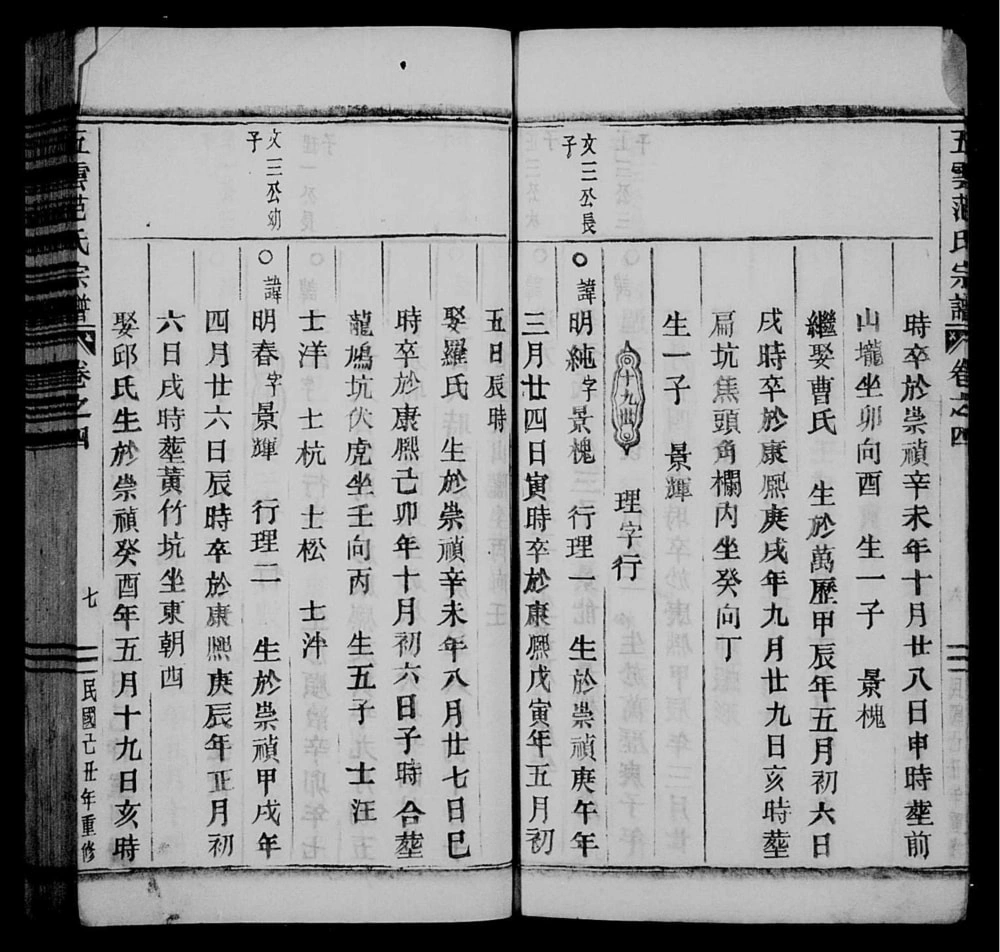 五雲范氏宗譜 卷之四
時卒於崇禎辛未年十月廿八日申時塟前
山壠坐卯向酉 生一子 景槐
繼娶曹氏 生於萬歷甲辰年五月初六日
戌時卒於康熙庚戌年九月廿九日亥時塟
扁坑焦頭角欄內坐癸向丁
生一子 景輝
十九世 理字行
文三公長
子
○諱明純字景槐 行理一 生於崇禎庚午年
三月廿四日寅時卒於康熙戊寅年五月初
五日辰時
娶羅氏 生於崇禎辛未年八月廿七日巳
時卒於康熙己卯年十月初六日子時合塟
龍鳩坑伏虎坐壬向丙 生五子 士汪
士洋 士杭 士松 士泮
文三公幼
子
○諱明春字景輝 行理二 生於崇禎甲戌年
四月廿六日辰時卒於康熙庚辰年正月初
六日戌時塟黃竹坑坐東朝西
娶邱氏生於崇禎癸酉年五月十九日亥時
五雲范氏宗譜 卷之四 七 民國己丑年重修